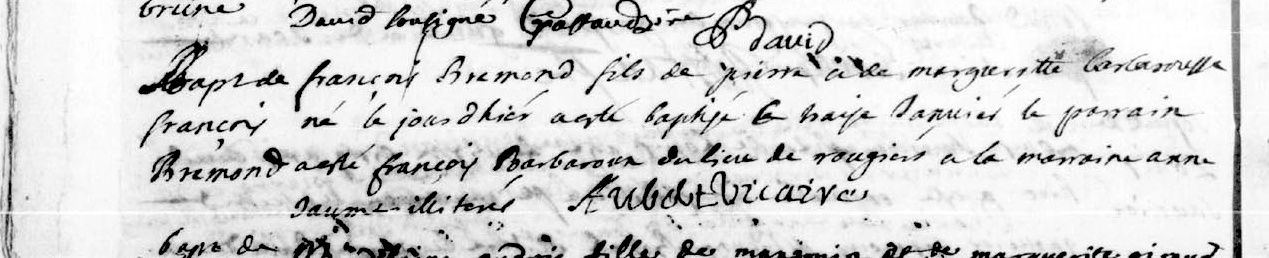 brune David Sousigné Castaud ptre P david
Bapt de françois Bremond fils de pierre et de margueritte barbarousse
françois né le jourdhier a esté baptisé le traise Janvier le parrain
Bremond a esté françois Barbaroux du lieu de rougiers a la marraine anne
Jaume illiterés Aubert Vicaire
bapt de fille de et de marguerite giraud